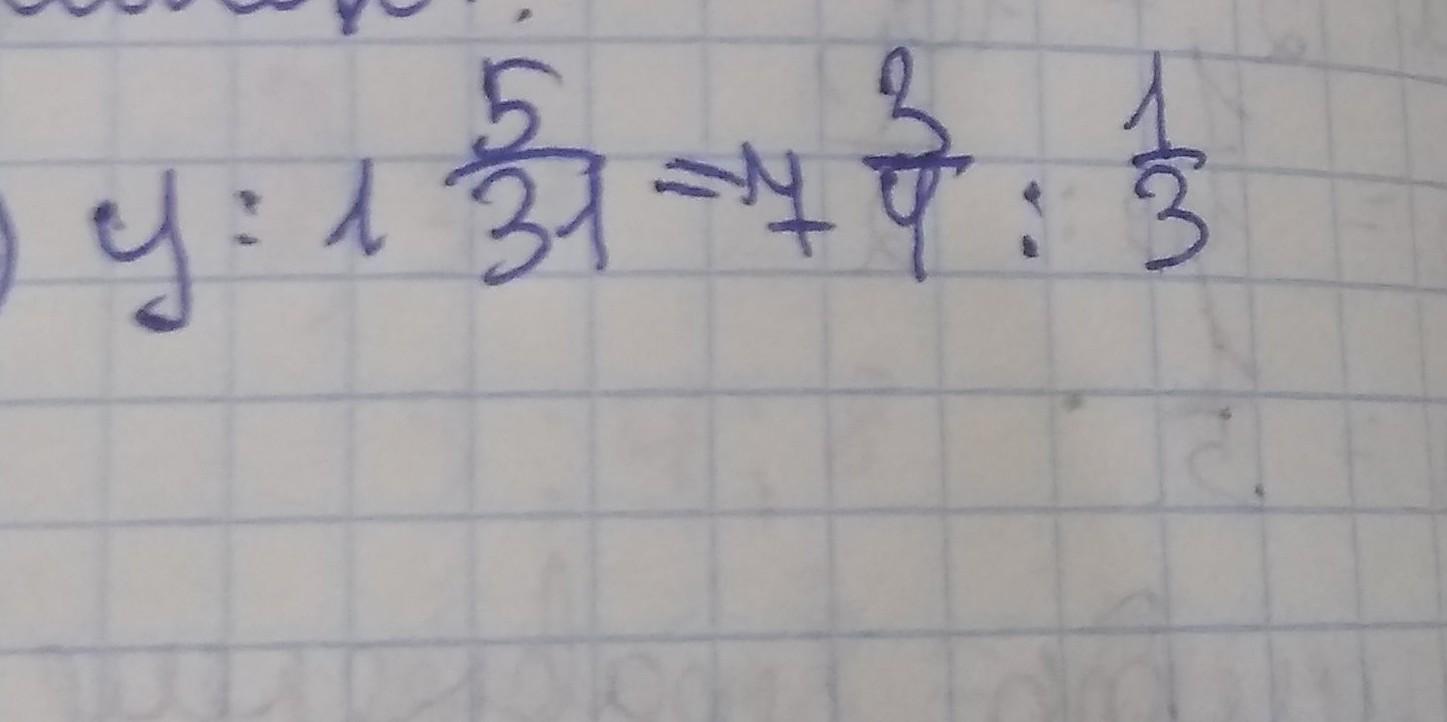 ) y : 1 5/31 = 7 3/4 : 1/3